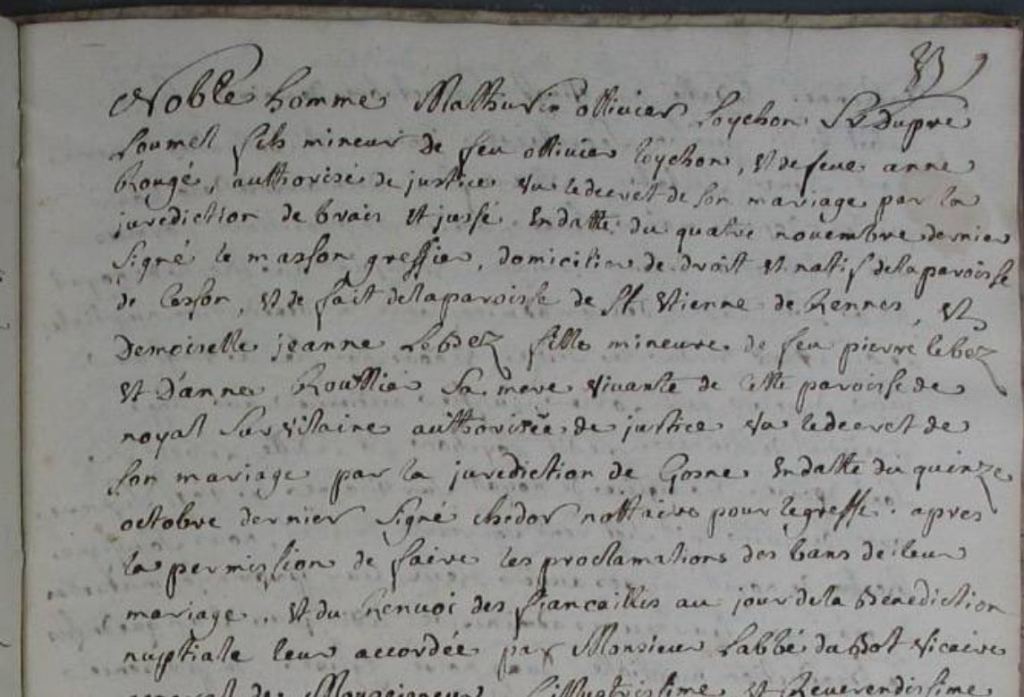 Noble homme Mathurin ollivier Loychon Sr Dupre
Loumel fils mineur de feu ollivier loychon, et de feue anne
Rougé, authorisé de justice vu le decret de son mariage par la
juridiction de brais et jussé en datte du quatre novembre dernier
signé le masson greffier, domicilier de droit et natif de la paroisse
de Cesson, et de fait de la paroisse de St Etienne de Rennes, et
Demoiselle jeanne Lebez fille mineure de feu pierre lebez
et d'anne Routtier sa mere vivante de cette paroisse de
noyal sur vilaine authorisée de justice vu le decret de
son mariage par la jurediction de Gosne en datte du quinze
octobre dernier signé chedor nottaire pour le greffe. apres
la permission de faire les proclamations des bans de leur
mariage, et du Renvoi des fiancailles au jour de la Benediction
nuptiale leur accordée par Monsieur Labbé du Bot Vicaire
general de Monseigneur L'illustrissime et Reverendissime